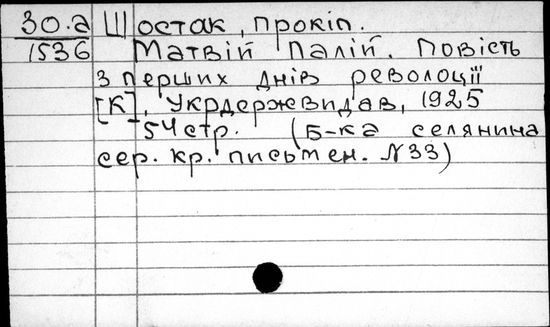 30.а Шостак, Прокіп.
1536 Матвій Палій. Повість
з перших днів революції
[К], Укрдержвидав, 1925
54 стр. (Б-ка селянина
сер. кр. письмен. №33)